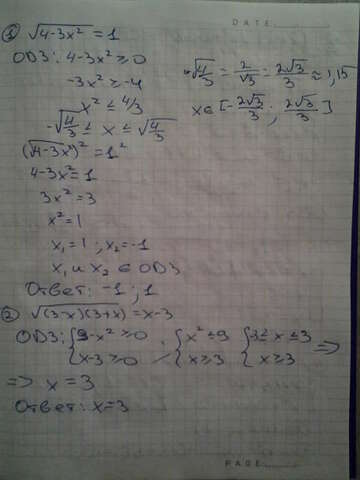 DATE
① √(4-3x²) = 1
ОДЗ: 4-3x² ≥ 0
-3x² ≥ -4
x² ≤ 4/3
-√(4/3) ≤ x ≤ √(4/3)
√(4/3) = 2/√3 = 2√3/3 ≈ 1,15
x ∈ [-2√3/3 ; 2√3/3]
(√(4-3x²))² = 1²
4-3x² = 1
3x² = 3
x² = 1
x₁ = 1 ; x₂ = -1
x₁ и x₂ ∈ ОДЗ
Ответ: -1 ; 1
② √((3-x)(3+x)) = x-3
ОДЗ: { 9-x² ≥ 0 { x² ≤ 9 { 3 ≤ x ≤ 3 =>
{ x-3 ≥ 0 { x ≥ 3 { x ≥ 3
=> x = 3
Ответ: x=3
PAGE